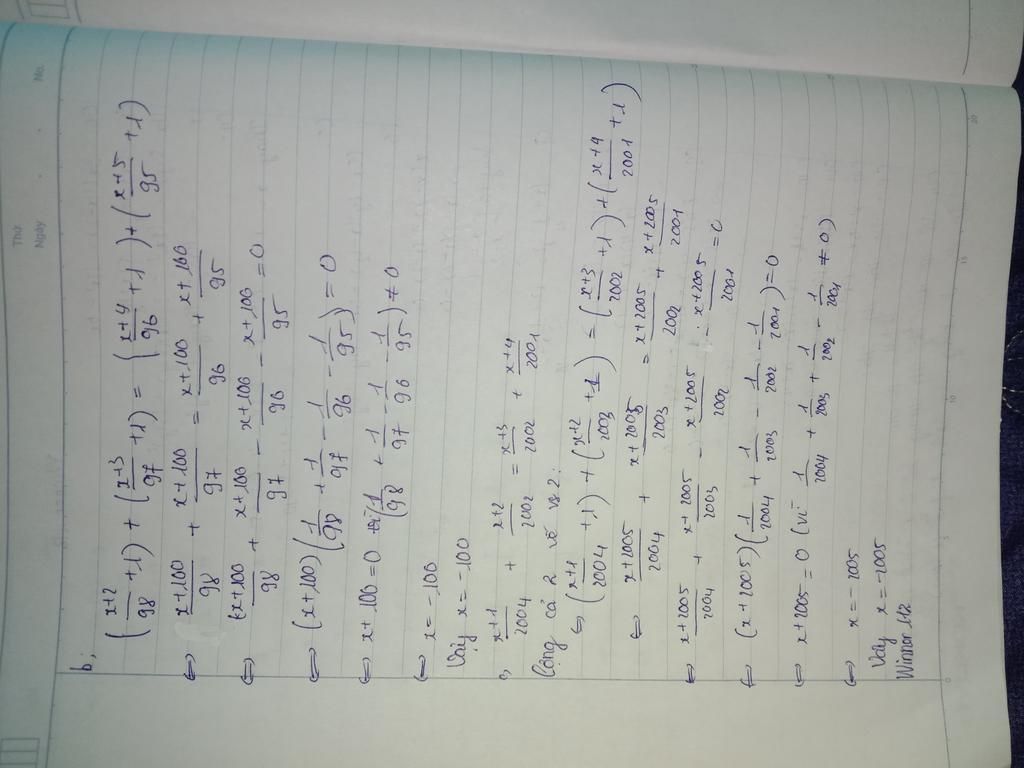 Thứ
Ngày
No.
b;
(x+2/98 + 1) + (x+3/97 + 1) = (x+4/96 + 1) + (x+5/95 + 1)
⇔ x+100/98 + x+100/97 = x+100/96 + x+100/95
⇔ x+100/98 + x+100/97 - x+100/96 - x+100/95 = 0
⇔ (x+100)(1/98 + 1/97 - 1/96 - 1/95) = 0
⇔ x+100=0 vì (1/98 + 1/97 - 1/96 - 1/95) ≠ 0
⇔ x=-100
Vậy x=-100
c, x+1/2004 + x+2/2002 = x+3/2002 + x+4/2001
Cộng cả 2 vế vs 2:
⇔ (x+1/2004 + 1) + (x+2/2003 + 1) = (x+3/2002 + 1) + (x+4/2001 + 1)
⇔ x+2005/2004 + x+2005/2003 = x+2005/2002 + x+2005/2001
⇔ x+2005/2004 + x+2005/2003 - x+2005/2002 - x+2005/2001 = 0
⇔ (x+2005)(1/2004 + 1/2003 - 1/2002 - 1/2001) = 0
⇔ x+2005=0 (vì 1/2004 + 1/2003 + 1/2002 - 1/2001 ≠ 0)
⇔ x=-2005
Vậy x=-2005
0 5 10 15 20